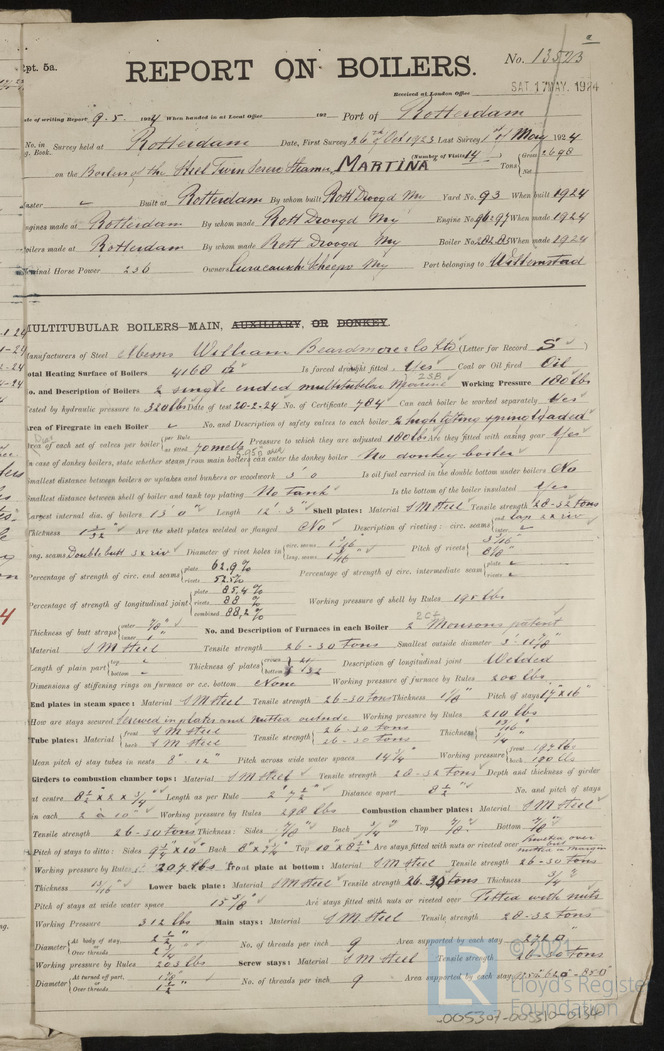 Rpt. 5a.
REPORT ON BOILERS.
No. 13523
Received at London Office
SAT. 17 MAY. 1924
Date of writing Report 9-5 1924 When handed in at Local Office 192 Port of Rotterdam
No. in Reg. Book. Survey held at Rotterdam Date, First Survey 26th Oct 1923 Last Survey 1st of May 1924
on the Boilers of the Steel Twin Screw Steamer MARTINA (Number of Visits 14) Tons { Gross 2698
Net
Master Built at Rotterdam By whom built Rott Droogd My Yard No. 93 When built 1924
Engines made at Rotterdam By whom made Rott Droogd My Engine No. 96/97 When made 1924
Boilers made at Rotterdam By whom made Rott Droogd My Boiler No. 282.83 When made 1924
Nominal Horse Power 236 Owners Curacaosche Scheepv My Port belonging to Willemstad
MULTITUBULAR BOILERS—MAIN, AUXILIARY, OR DONKEY.
Manufacturers of Steel Messrs William Beardmore & Co Ltd (Letter for Record S)
Total Heating Surface of Boilers 4168 Is forced draught fitted Yes Coal or Oil fired Oil
No. and Description of Boilers 2 single ended multitubular Marine 2SB Working Pressure 180 lbs
Tested by hydraulic pressure to 320 lbs Date of test 20-2-24 No. of Certificate 784 Can each boiler be worked separately Yes
Area of Firegrate in each Boiler No. and Description of safety valves to each boiler 2 high lifting spring loaded
Area of each set of valves per boiler { per Rule
as fitted Pressure to which they are adjusted 180 lbs Are they fitted with easing gear Yes
In case of donkey boilers, state whether steam from main boilers can enter the donkey boiler No donkey boiler
Smallest distance between boilers or uptakes and bunkers or woodwork 3' 0 Is oil fuel carried in the double bottom under boilers No
Smallest distance between shell of boiler and tank top plating No Tank Is the bottom of the boiler insulated Yes
Largest internal dia. of boilers 13' 0" Length 12' 3" Shell plates: Material S M Steel Tensile strength 28-32 tons
Thickness 1 1/32 Are the shell plates welded or flanged No Description of riveting: circ. seams { end lap 2x riv
inter.
long. seams Double butt 3x riv Diameter of rivet holes in { circ. seams 1 3/16
long. seams 1 1/16 Pitch of rivets {
Percentage of strength of circ. end seams { plate 62.9%
rivets 52.5% Percentage of strength of circ. intermediate seam { plate
rivets
Percentage of strength of longitudinal joint { plate 85,4 %
rivets 88 %
combined 88,2 % Working pressure of shell by Rules 198 lbs
Thickness of butt straps { outer 7/8"
inner 1" No. and Description of Furnaces in each Boiler 2 Morisons patent
Material S M Steel Tensile strength 26-30 tons Smallest outside diameter
Length of plain part { top
bottom Thickness of plates { crown
bottom Description of longitudinal joint Welded
Dimensions of stiffening rings on furnace or c.c. bottom None Working pressure of furnace by Rules 200 lbs
End plates in steam space: Material S M Steel Tensile strength 26-30 tons Thickness 1 1/8" Pitch of stays 17" x 16"
How are stays secured Screwed in plates and nutted outside Working pressure by Rules 210 lbs
Tube plates: Material { front S M Steel
back S M Steel Tensile strength { 26-30 tons
26-30 tons Thickness { 13/16"
3/4"
Mean pitch of stay tubes in nests 8" - 12" Pitch across wide water spaces 14 1/4" Working pressure { front 197 lbs
back 180 lbs
Girders to combustion chamber tops: Material S M Steel Tensile strength 28-32 tons Depth and thickness of girder
at centre 8 1/2 x 2 x 3/4" Length as per Rule 2' 7 1/2" Distance apart 8 1/2" No. and pitch of stays
in each 2 à 10" Working pressure by Rules 298 lbs Combustion chamber plates: Material S M Steel
Tensile strength 26-30 tons Thickness: Sides Back 3/4" Top Bottom 7/8"
Pitch of stays to ditto: Sides 9 1/4 x 10" Back Top 10" x 8 1/2" Are stays fitted with nuts or riveted over Rivetted over but nutted in margin
Working pressure by Rules 207 lbs Front plate at bottom: Material S M Steel Tensile strength 26-30 tons
Thickness 13/16" Lower back plate: Material S M Steel Tensile strength 26-30 tons Thickness 3/4"
Pitch of stays at wide water space Are stays fitted with nuts or riveted over Fitted with nuts
Working Pressure 312 lbs Main stays: Material S M Steel Tensile strength 28-32 tons
Diameter { At body of stay, 2 1/2"
Over threads No. of threads per inch 9 Area supported by each stay 272
Working pressure by Rules 203 lbs Screw stays: Material S M Steel Tensile strength 26-30 tons
Diameter { At turned off part,
Over threads 1 1/2" No. of threads per inch 9 Area supported by each stay
© 2021
LR
Lloyd's Register
Foundation
005307-005310-0134